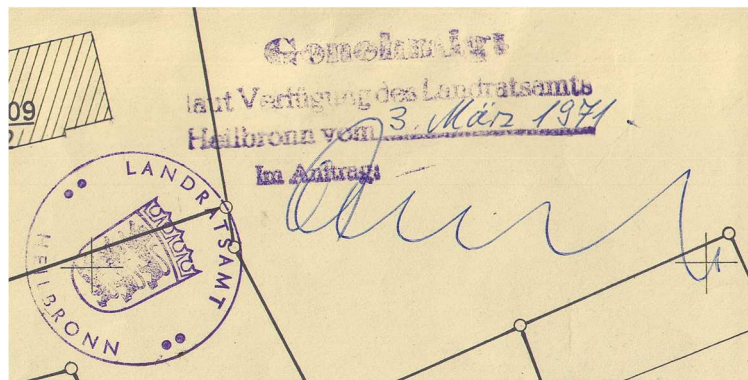 Genehmigt
laut Verfügung des Landratsamts
Heilbronn vom 3. März 1971.
Im Auftrag:
09
LANDRATSAMT
HEILBRONN